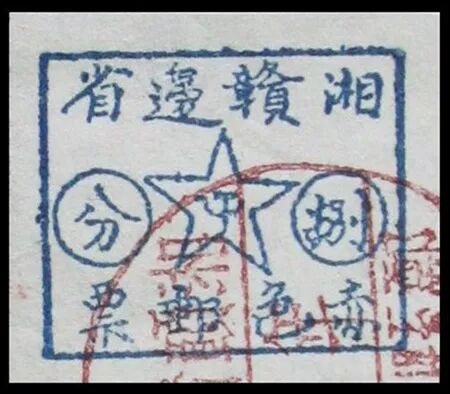 湘贛邊省
捌分
赤色郵票